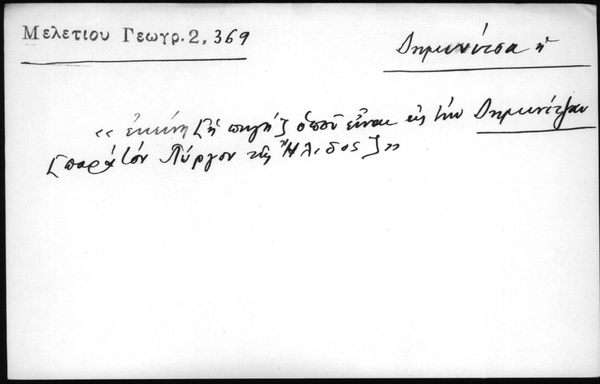 Μελετίου Γεωγρ. 2, 369
Δημινίτσα ἡ
« ἐκείνη [ἡ πηγὴ] ὁποῦ εἶναι εἰς τὴν Δημινίτζαν
[παρὰ τὸν Πύργον τῆς Ἤλιδος] »